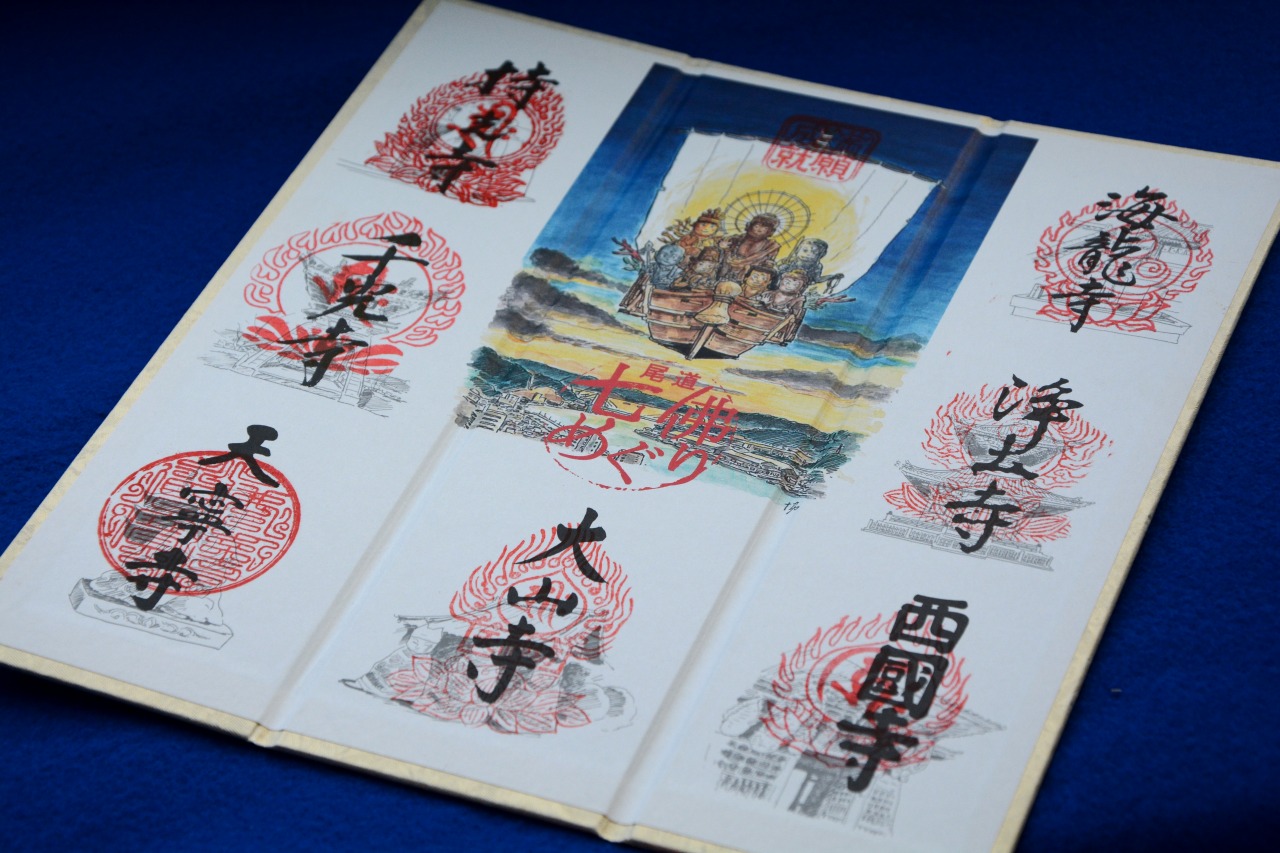 持光寺
千光寺
天寧寺
満願
成就
尾道
七佛
めぐり
大山寺
海龍寺
浄土寺
西國寺